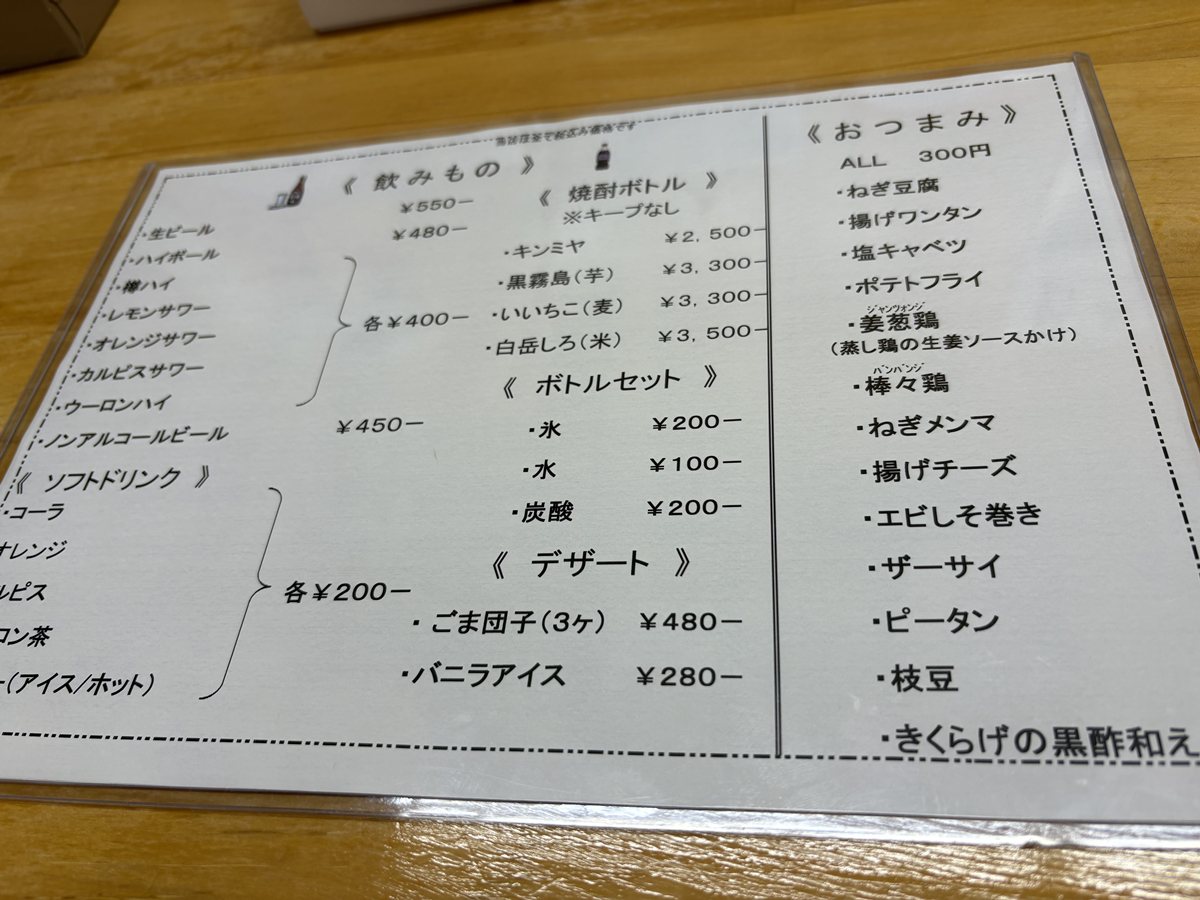 《 飲みもの 》
・生ビール ￥550－
・ハイボール ￥480－
・樽ハイ
・レモンサワー
・オレンジサワー
・カルピスサワー
・ウーロンハイ
各￥400－
・ノンアルコールビール ￥450－
《 ソフトドリンク 》
・コーラ
オレンジ
ルピス
ロン茶
ー(アイス/ホット)
各￥200－
《 焼酎ボトル 》
※キープなし
・キンミヤ ￥2,500－
・黒霧島(芋) ￥3,300－
・いいちこ(麦) ￥3,300－
・白岳しろ(米) ￥3,500－
《 ボトルセット 》
・氷 ￥200－
・水 ￥100－
・炭酸 ￥200－
《 デザート 》
・ごま団子(3ヶ) ￥480－
・バニラアイス ￥280－
《 おつまみ 》
ALL 300円
・ねぎ豆腐
・揚げワンタン
・塩キャベツ
・ポテトフライ
ジャンツォンジ
・姜葱鶏
(蒸し鶏の生姜ソースかけ)
バンバンジ
・棒々鶏
・ねぎメンマ
・揚げチーズ
・エビしそ巻き
・ザーサイ
・ピータン
・枝豆
・きくらげの黒酢和え